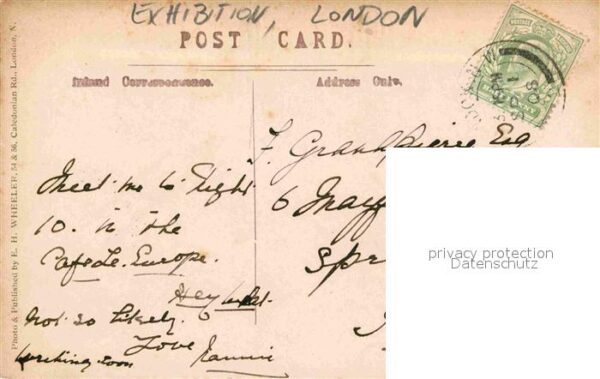 EXHIBITION, LONDON
POST CARD.
Inland Correspondence.
Address Only.
Photo & Published by E. H. WHEELER, 54 & 56, Caledonian Rd., London, N.
Meet me to Night
10. in the
Cafe de. Europe.
Hey
Not so likely.
Love
writing soon
F. Grand Esq
6
privacy protection
Datenschutz